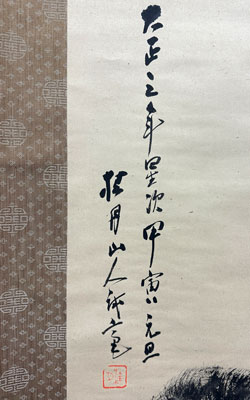 大正三年星次甲寅元旦
牡丹山人